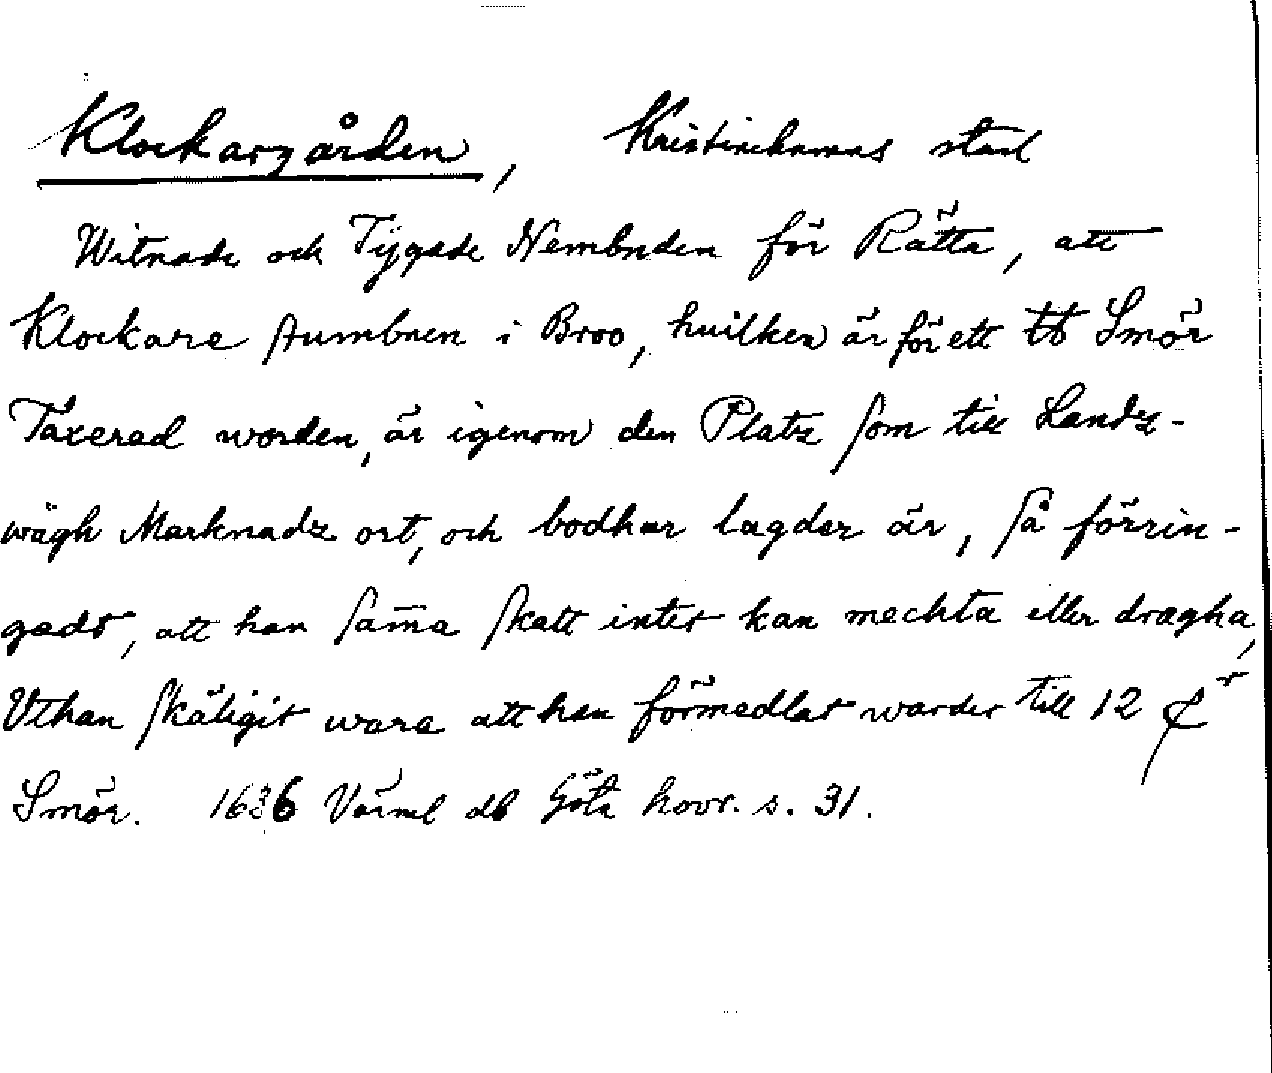 Klockargården, Kristinehamns stad
Witnade och Tÿgade Nembnden för Rätta, att
Klockare stumbnen i Broo, huilken är för ett tt Smör
Taxerad worden, är igenom den Platz som till Landz-
wägh Marknadz ort, och bodhar lagder är, så förrin-
gadt, att han sam̄a skatt intet kan mechta eller dragha,
Uthan skäligit ware att han förmedlat warder till 12
Smör. 1636 Värml db Göta hovr. s. 31.